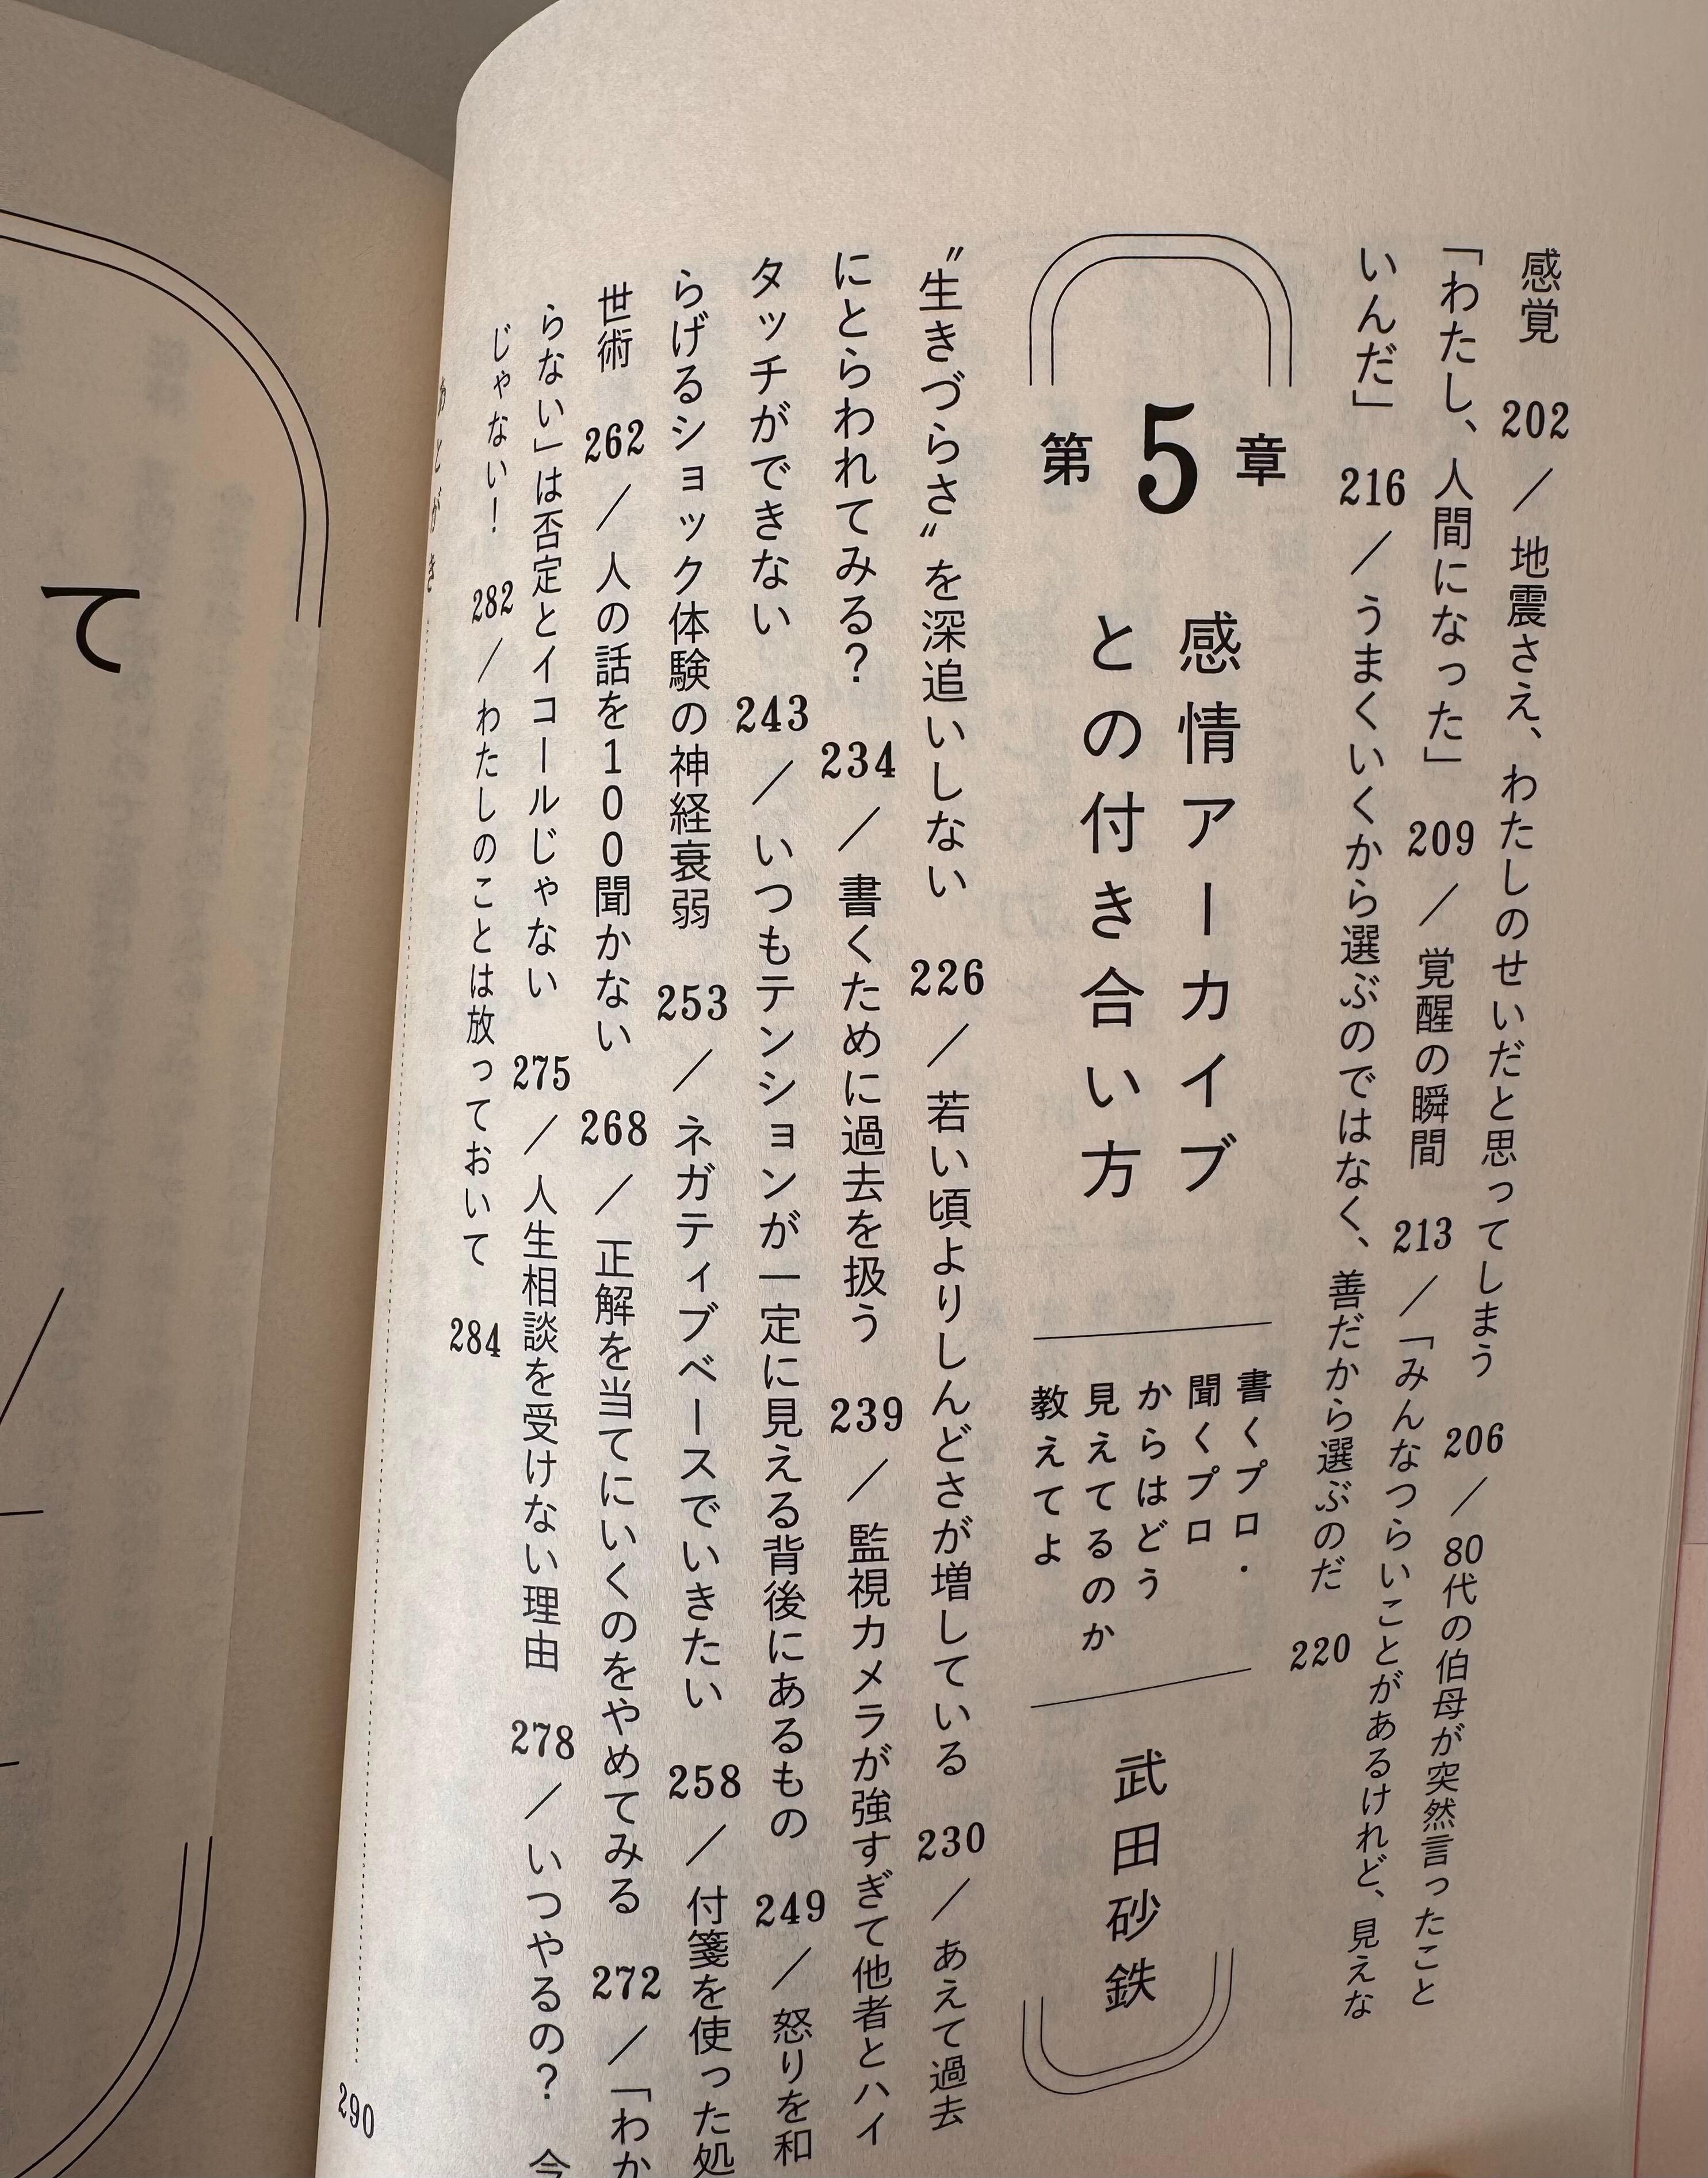 感覚 202／地震さえ、わたしのせいだと思ってしまう 206／80代の伯母が突然言ったこと
「わたし、人間になった」 209／覚醒の瞬間 213／「みんなつらいことがあるけれど、見えな
いんだ」 216／うまくいくから選ぶのではなく、善だから選ぶのだ 220
第5章
感情アーカイブ
との付き合い方
書くプロ・
聞くプロ
からはどう
見えてるのか
教えてよ
武田砂鉄
〝生きづらさ〟を深追いしない 226／若い頃よりしんどさが増している 230／あえて過去
にとらわれてみる? 234／書くために過去を扱う 239／監視カメラが強すぎて他者とハイ
タッチができない 243／いつもテンションが一定に見える背後にあるもの 249／怒りを和
らげるショック体験の神経衰弱 253／ネガティブベースでいきたい 258／付箋を使った処
世術 262／人の話を100聞かない 268／正解を当てにいくのをやめてみる 272／「わか
らない」は否定とイコールじゃない 275／人生相談を受けない理由 278／いつやるの? 今
じゃない! 282／わたしのことは放っておいて 284
あとがき 290
て